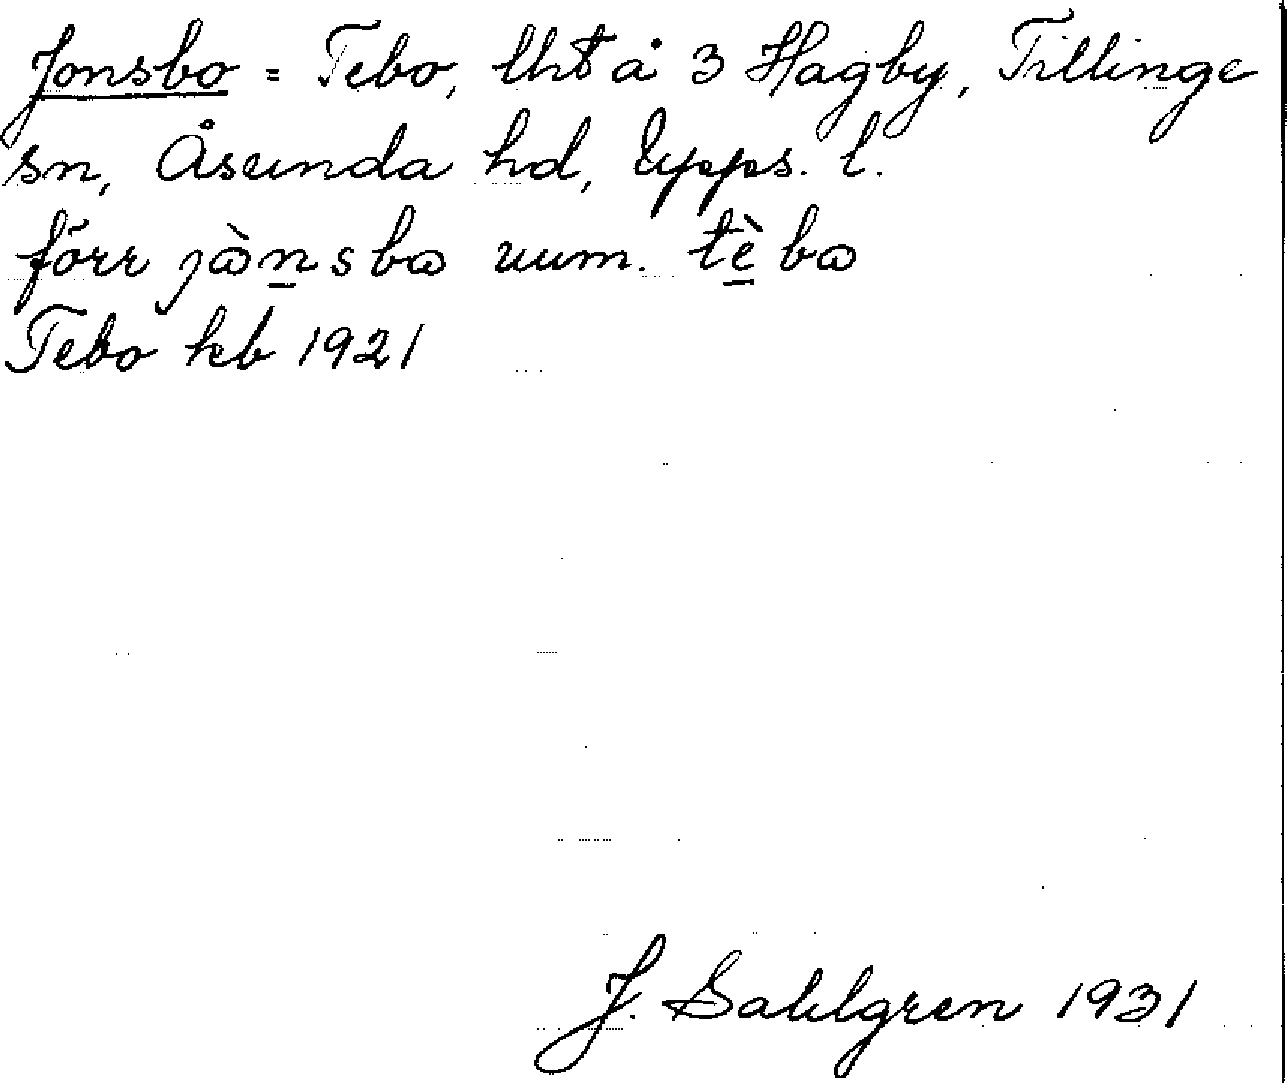 Jonsbo = Tebo, lht å 3 Hagby, Tillinge
sn, Åsunda hd, Upps. l.
förr jὼnsbω uum. tèbω
Tebo kb 1921
J. Sahlgren 1931